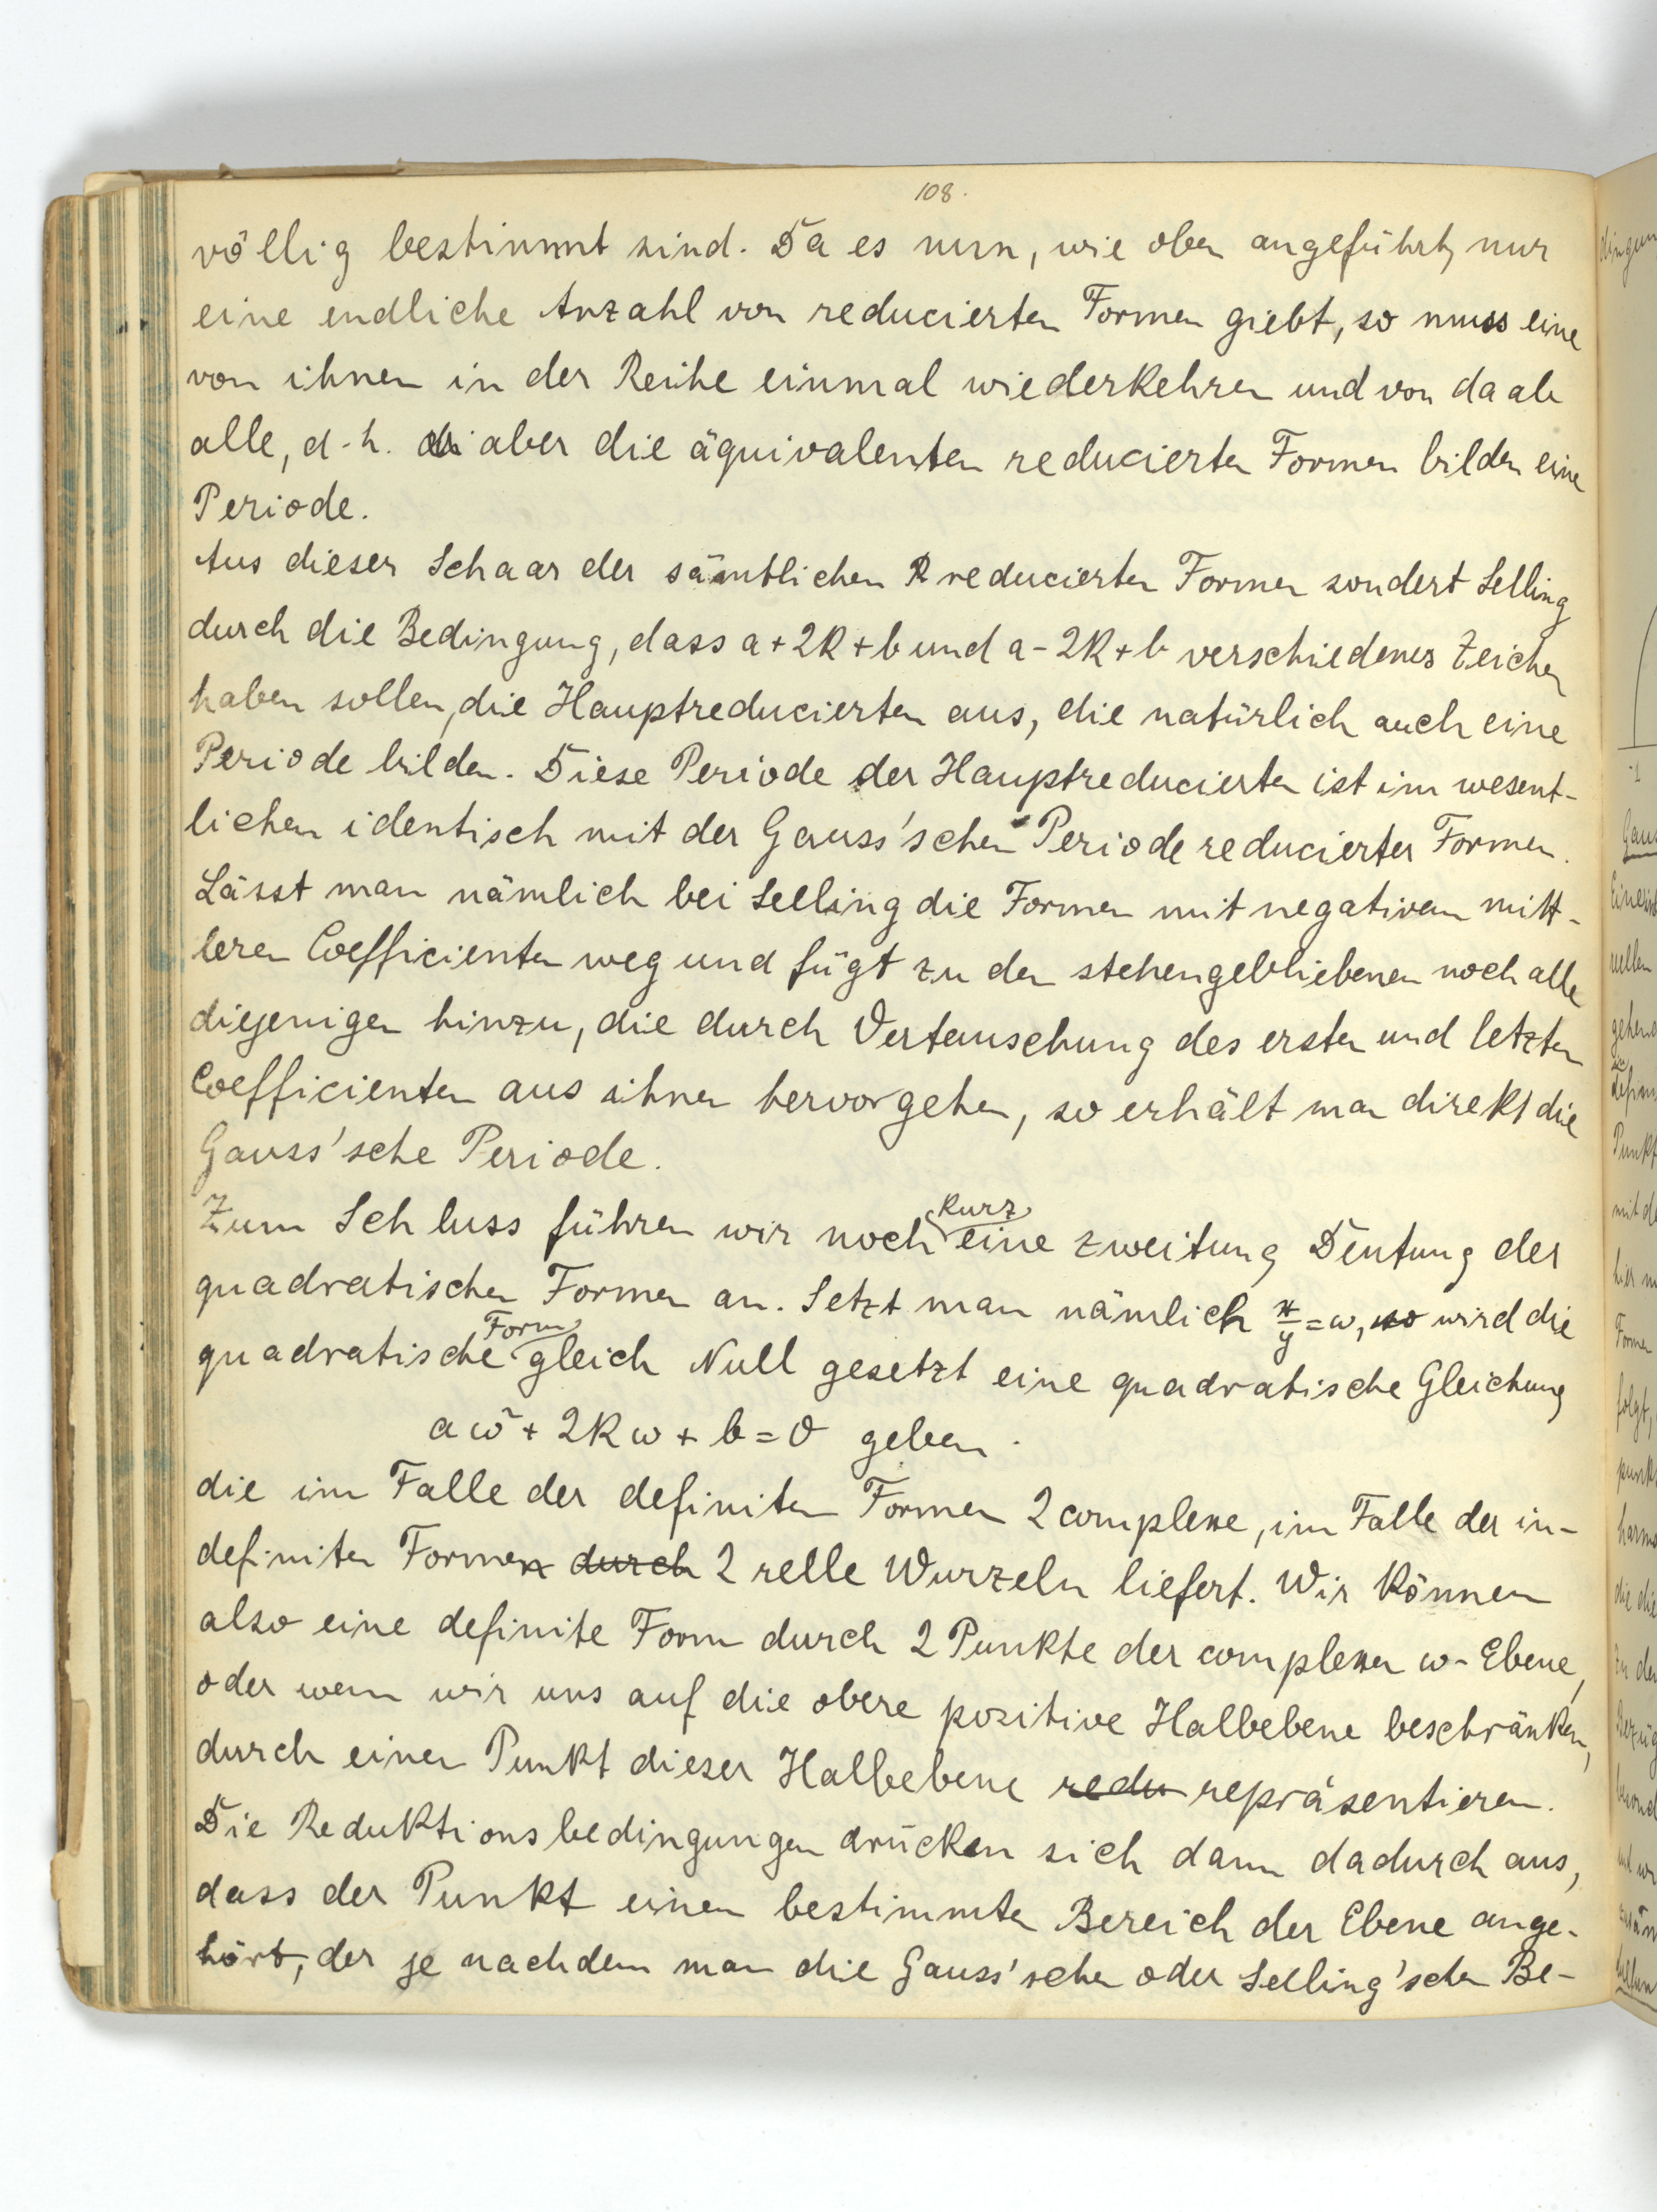 108.
völlig bestimmt sind. Da es nun, wie oben angeführt, nur
eine endliche Anzahl von reducierten Formen giebt, so muss eine
von ihnen in der Reihe einmal wiederkehren und von da ab
alle, d.h. aber die äquivalenten reducierten Formen bilden eine
Periode.
Aus dieser Schaar der sämtlichen reducierten Formen sondert Selling
durch die Bedingung, dass a + 2k + b und a - 2k + b verschiedenes Zeichen
haben sollen, die Hauptreducierten aus, die natürlich auch eine
Periode bilden. Diese Periode der Hauptreducierten ist im wesent-
lichen identisch mit der Gauss'schen Periode reducierter Formen.
Lässt man nämlich bei Selling die Formen mit negativem mitt-
leren Coefficienten weg und fügt zu den stehengebliebenen noch alle
diejenigen hinzu, die durch Vertauschung des ersten und letzten
Coefficienten aus ihnen hervorgehen, so erhält man direkt die
Gauss'sche Periode.
Zum Schluss führen wir noch kurz eine zweitung Deutung der
quadratischen Formen an. Setzt man nämlich x/y = ω, so wird die
quadratische Form gleich Null gesetzt eine quadratische Gleichung
aω² + 2kω + b = 0 geben.
die im Falle der definiten Formen 2 complexe, im Falle der in-
definiten Formen durch 2 relle Wurzeln liefert. Wir können
also eine definite Form durch 2 Punkte der complexen ω-Ebene,
oder wenn wir uns auf die obere positive Halbebene beschränken,
durch einen Punkt dieser Halbebene redu repräsentieren.
Die Reduktionsbedingungen drücken sich dann dadurch aus,
dass der Punkt einem bestimmten Bereich der Ebene ange-
hört, der je nachdem man die Gauss'schen oder Selling'schen Be-